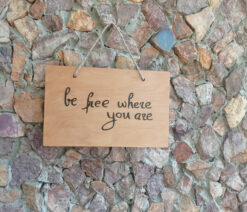 be free where
you are